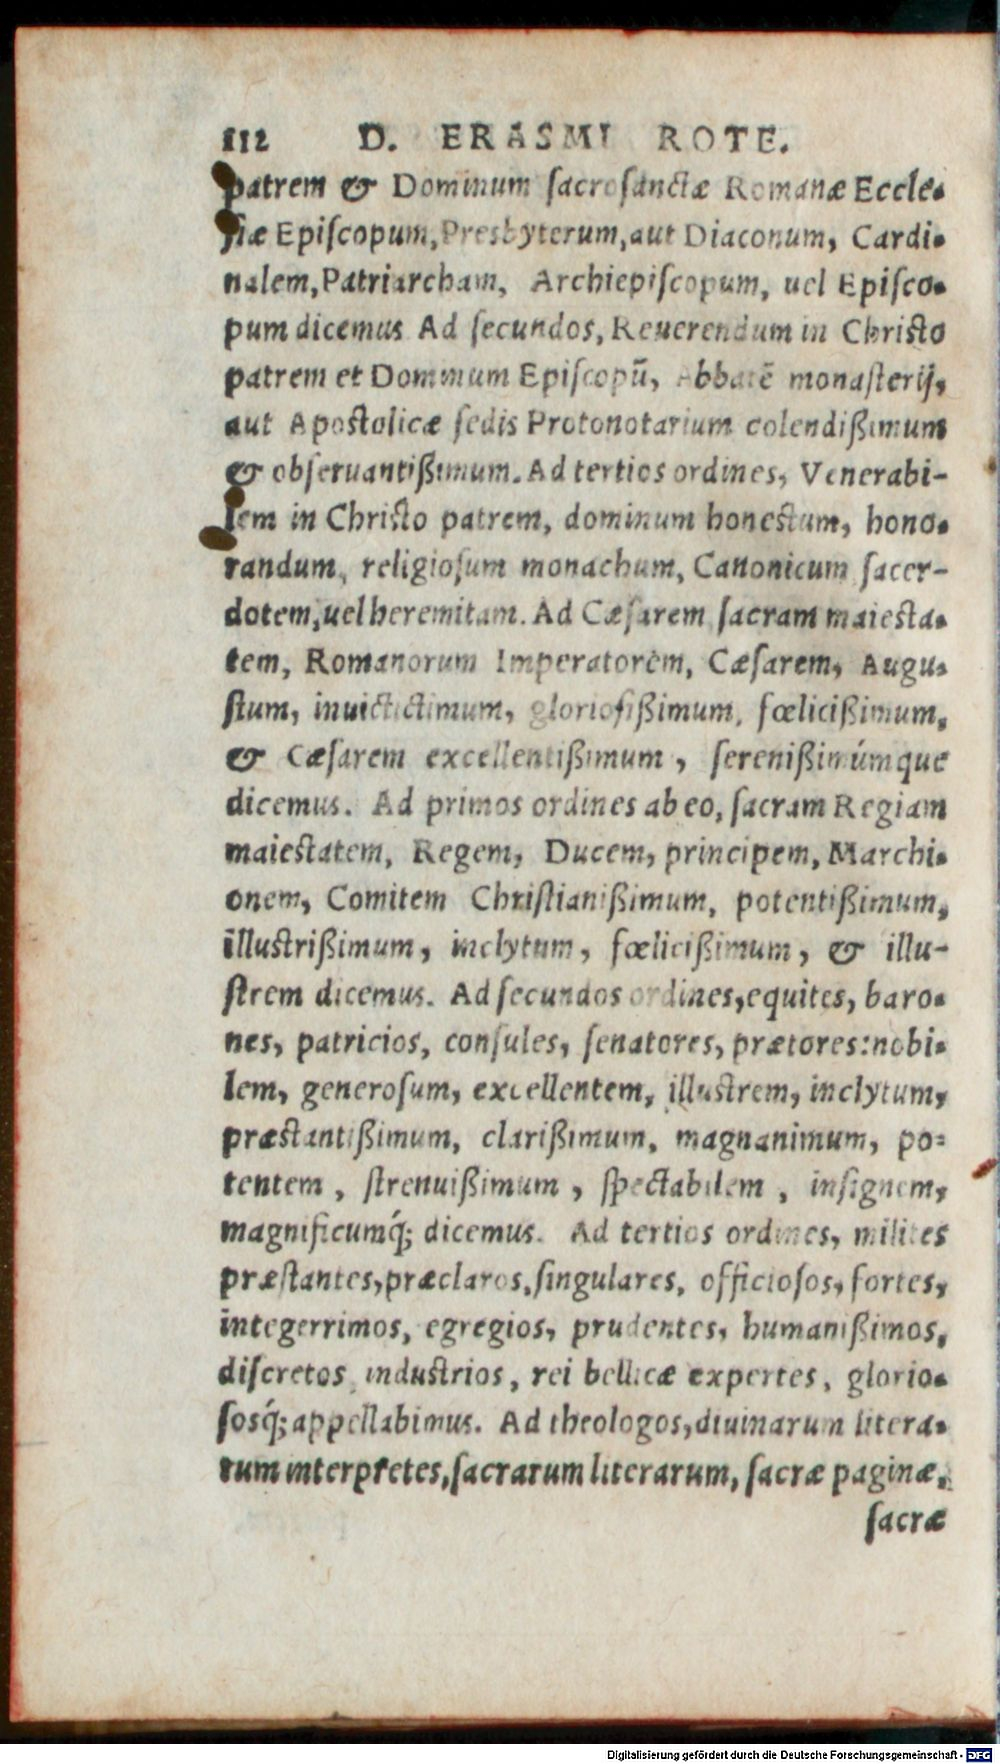 112 D. ERASMI ROTE.
patrem & Dominum sacrosanctæ Romanæ Eccle-
siæ Episcopum, Presbyterum, aut Diaconum, Cardi-
nalem, Patriarcham, Archiepiscopum, uel Episco-
pum dicemus Ad secundos, Reuerendum in Christo
patrem et Dominum Episcopũ, Abbatẽ monasterij,
aut Apostolicæ sedis Protonotarium colendißimum
& obseruantißimum. Ad tertios ordines, Venerabi-
lem in Christo patrem, dominum honestum, hono-
randum, religiosum monachum, Canonicum sacer-
dotem, uel heremitam. Ad Cæsarem sacram maiesta-
tem, Romanorum Imperatorem, Cæsarem, Augu-
stum, inuictictimum, gloriosißimum, fœlicißimum,
& Cæsarem excellentißimum, serenißimúmque
dicemus. Ad primos ordines ab eo, sacram Regiam
maiestatem, Regem, Ducem, principem, Marchi-
onem, Comitem Christianißimum, potentißimum,
illustrißimum, inclytum, fœlicißimum, & illu-
strem dicemus. Ad secundos ordines, equites, baro-
nes, patricios, consules, senatores, prætores: nobi-
lem, generosum, excellentem, illustrem, inclytum,
præstantißimum, clarißimum, magnanimum, po-
tentem, strenuißimum, spectabilem, insignem,
magnificumq́; dicemus. Ad tertios ordines, milites
præstantes, præclaros, singulares, officiosos, fortes,
integerrimos, egregios, prudentes, humanißimos,
discretos industrios, rei bellicæ expertes, glorio-
sosq́; appellabimus. Ad theologos, diuinarum litera-
rum interpretes, sacrarum literarum, sacræ paginæ,
sacræ
Digitalisierung gefördert durch die Deutsche Forschungsgemeinschaft - DFG